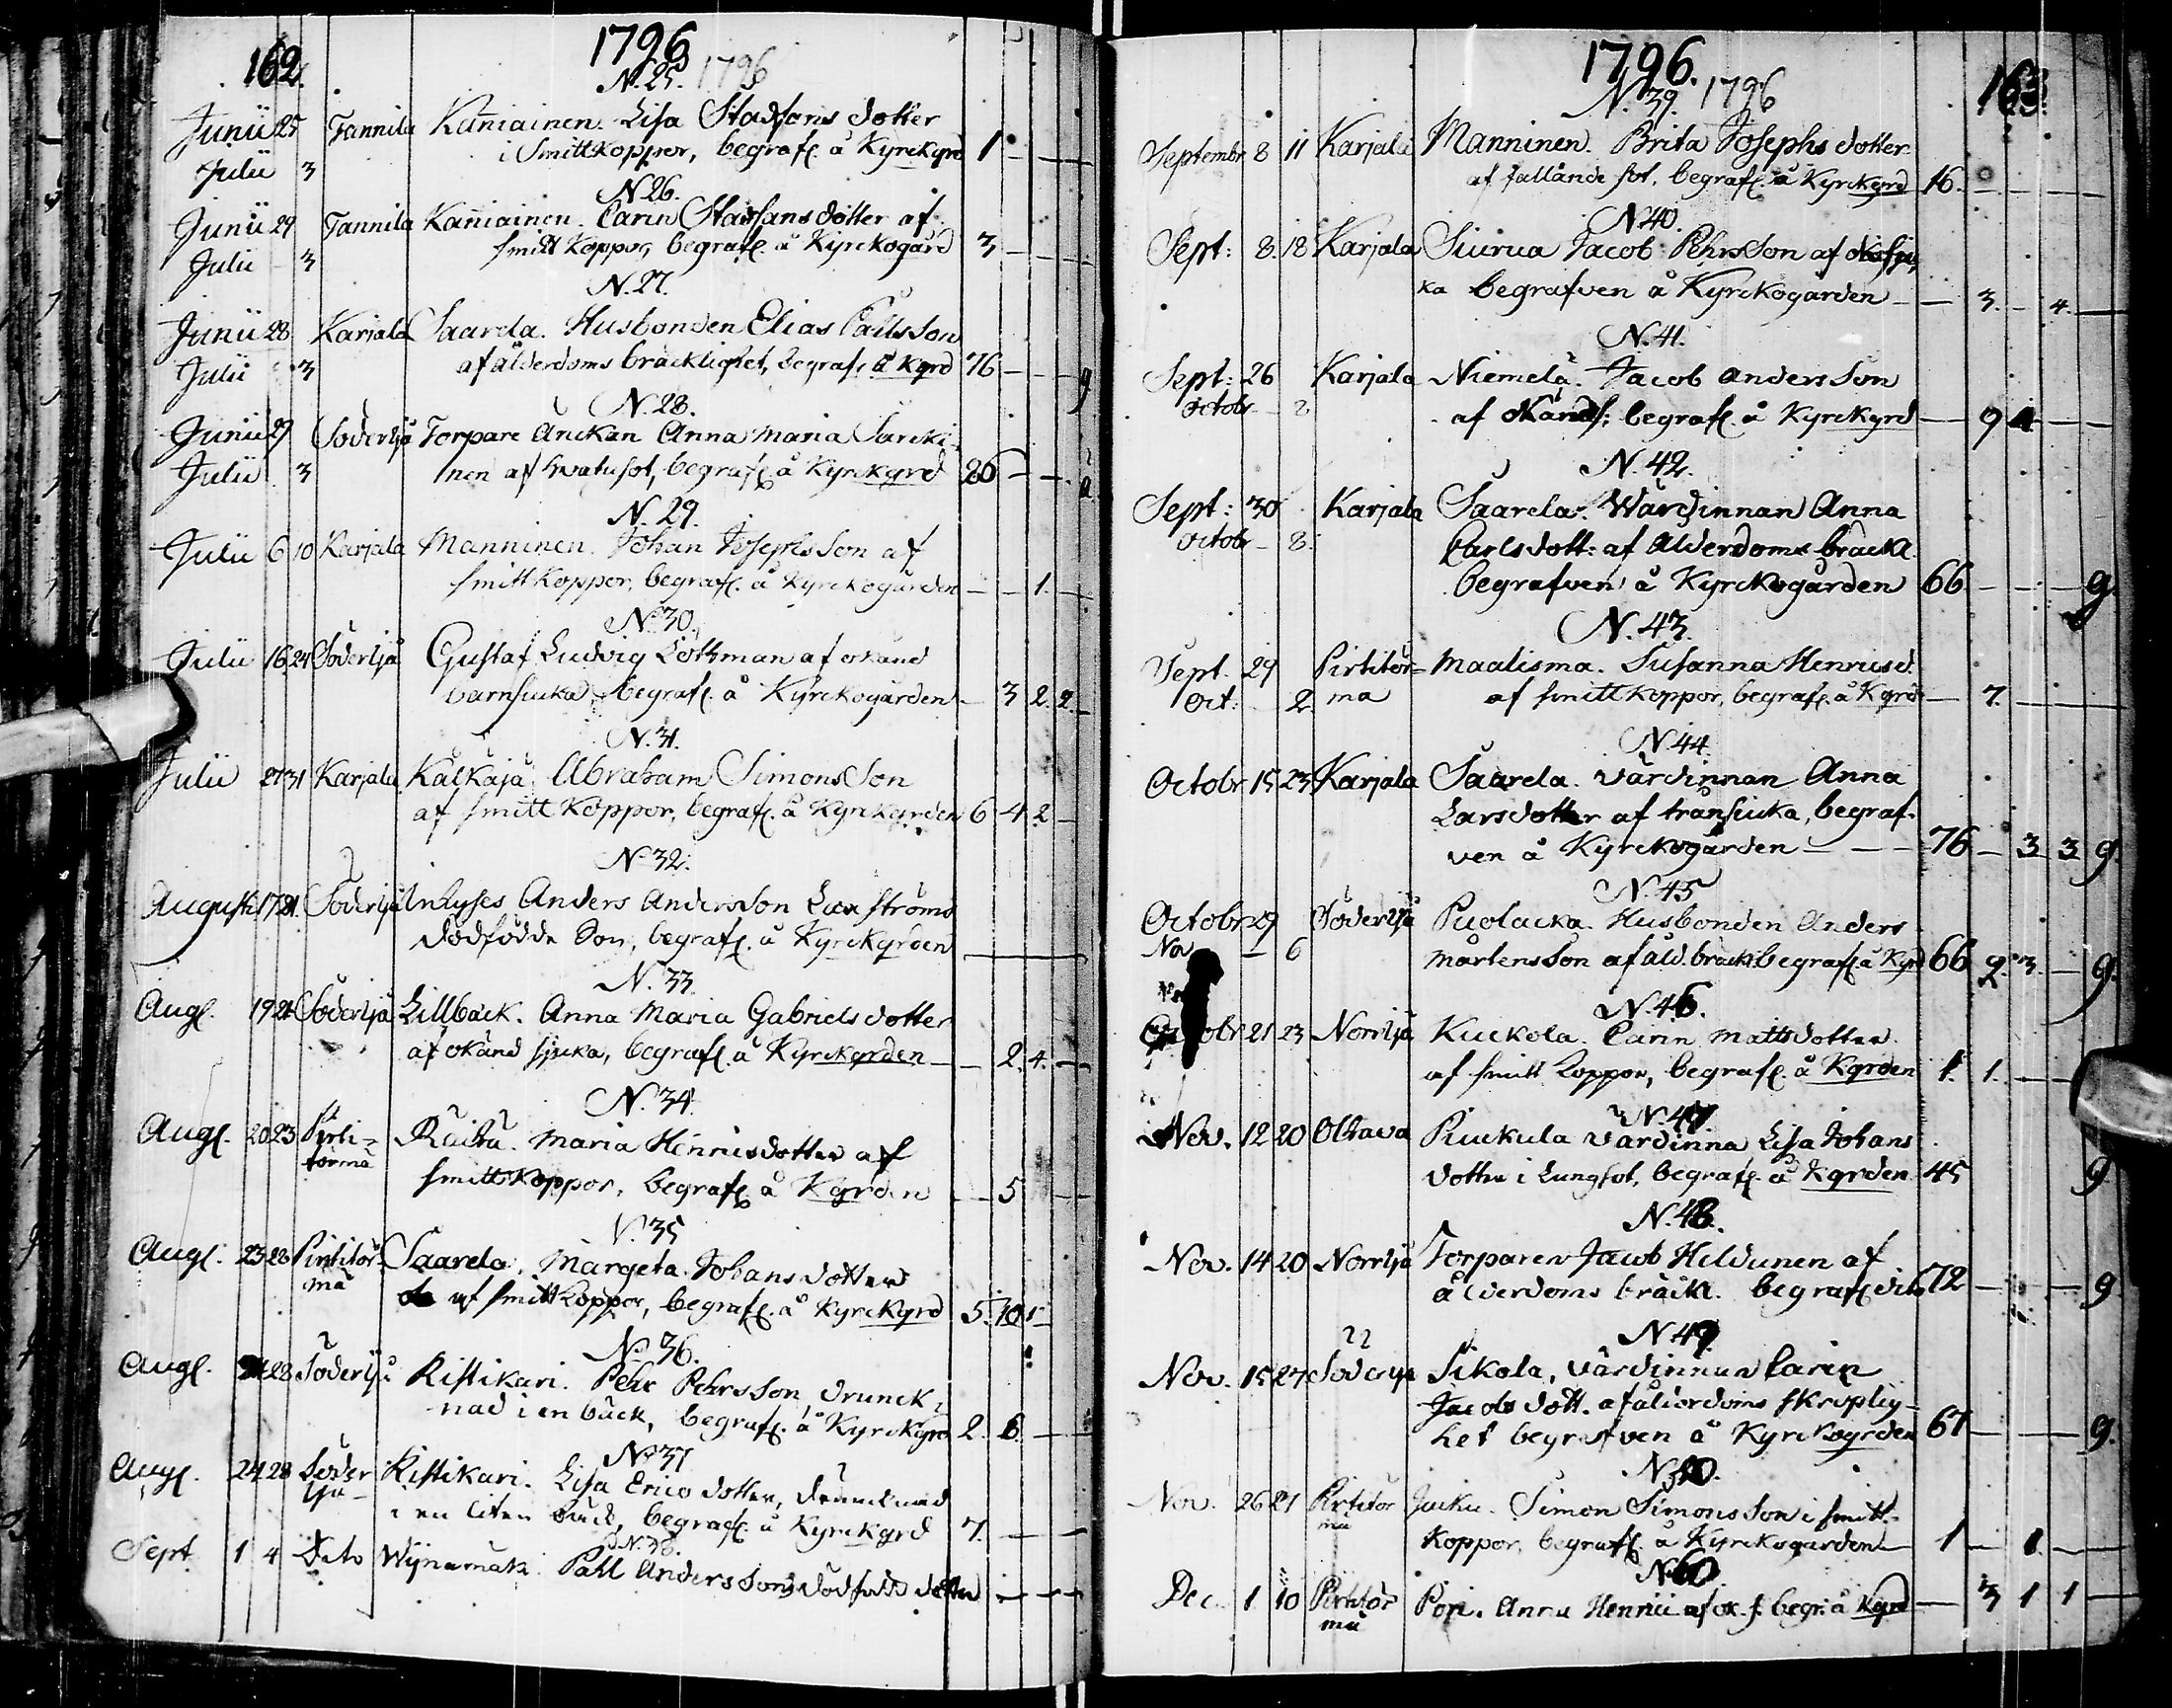 162.
1796
1796
N. 25.
Junii 25 Tannila Kaniainen. Lisa Stadfans dotter
Julii 3 i Smittkoppor, begrafs. å Kyrckgrd 1
N 26.
Junii 29 Tannila Kaniainen. Carin Stadfans dotter af
Julii 3 smittkoppor, begrafs. å Kyrckogård 3
N. 27.
Junii 28 Karjala Saarela. Husbonden Elias Påhlsson
Julii 3 af ålderdoms bräcklighet, begrafs. å Kgrd 76 g
N. 28.
Junii 29 Söderljå Torpare Änckan Anna Maria Sarcki-
Julii 3 nen af watusot, begrafs. å Kyrckgrd
N. 29.
Julii 6 10 Karjala Manninen. Johan Josephsson af
smittkoppor, begrafs. å Kyrckogården 1.
N. 30.
Julii 16 24 Söderljå Gustaf Ludvig Löthman af okänd
barnsiucka, begrafs. å Kyrckogården 3 2. 2.
N. 31.
Julii 27 31 Karjala Kälkäjä. Abraham Simonsson
af smittkoppor, begrafs. å Kyrckgrden 6 4 2
N. 32.
Augusti 17 21. Söderljå Inhyses Anders Andersson Laxströms
dödfödde Son, begrafs. å Kyrckgrden
N. 33.
Augs. 19 21 Söderljå Lillbäck. Anna Maria Gabrielsdotter
af okänd sjucka, begrafs. å Kyrckgrden 2. 4.
N. 34.
Augs. 20 23 Pirtti= Räihä. Maria Henricsdotter af
törmä smittkoppor, begrafs. å Kgrden 5
N. 35
Augs. 23 28 Pirtitör= Saarela. Margeta Johansdotter
mä af smittkoppor, begrafs. å Kyrckgrd 5. 10 1
N. 36.
Augs. 28 Söderljå Ristikari. Pehr Pehrsson, drunck-
nad i en bäck, begrafs. å Kyrckgrd 2. 6.
No 37
Augs. 24 28 Söder Ristikari. Lisa Ericsdotter, druncknad
ljå i en liten bäck, begrafs. å Kyrckgrd 7.
N. 38.
Sept. 1 4 Dito Påhl Anderssons dödfödd dotter
163.
1796.
1796
N. 39.
Septembr. 8 11 Karjala Manninen. Brita Josephsdotter
af fallande sot, begrafs. å Kyrckgrd 16.
N 40.
Sept: 8. 18 Karjala Siurua Jacob Pehrsson af
ka begrafven å Kyrckogården 3. 4.
N. 41.
Sept: 26 Karjala Niemelä. Jacob Andersson
Octobr 2 af okänd s. begrafs. å Kyrckgrd 9 4
N. 42.
Sept: 30 Karjala Saarela. Wärdinnan Anna
Octobr 8. Carlsdott: af Ålderdoms bräckl.
begrafven å Kyrckogården 66 g.
N. 43.
Sept. 29 Pirtitör= Maalisma. Susanna Henricsd.
Oct: 2 ma af smittkoppor, begrafs. å Kgrd 7.
N 44.
Octobr 15 23 Karjala Saarela. Värdinnan Anna
Larsdotter af transiucka, begraf-
ven å Kyrckogården 76 3 3 g.
N. 45
Octobr 29 Söderljå Puolacka. Husbonden Anders
Nov 6 Mårtensson af åld. bräckl. begrafs. å Kgrd 66 2. 3. g.
N. 46.
Octobr 21 23 Norrljå Kuckola. Carin Mattsdotter
af smittkoppor, begrafs. å Kgrden 1. 1.
N. 47
Nov. 12 20 Oltava Kuckula värdinna Lisa Johans
dotter i Lungsot, begrafs. å Kgrden 45 g
N. 48.
Nov. 14 20 Norrljå Torparen Jacob Heldunen af
ålderdoms bräckl. begrafs. dito 72 g
N 49
Nov. 15 27 Söderljå Sikola, värdinnan Carin
Jacobsdott. af ålderdoms skröplig-
het begrafven å Kyrckogrden 67 g.
N. 50.
Nov. 26 27 Pirtitör Jucku. Simon Simonsson i smitt-
mä koppor, begrafs. å Kyrckogården 1 8.
N 60
Dec. 1 10 Pirtitör Pori. Anna Henrici af ok. s. begr. å Kgrd 3 1 1
mä